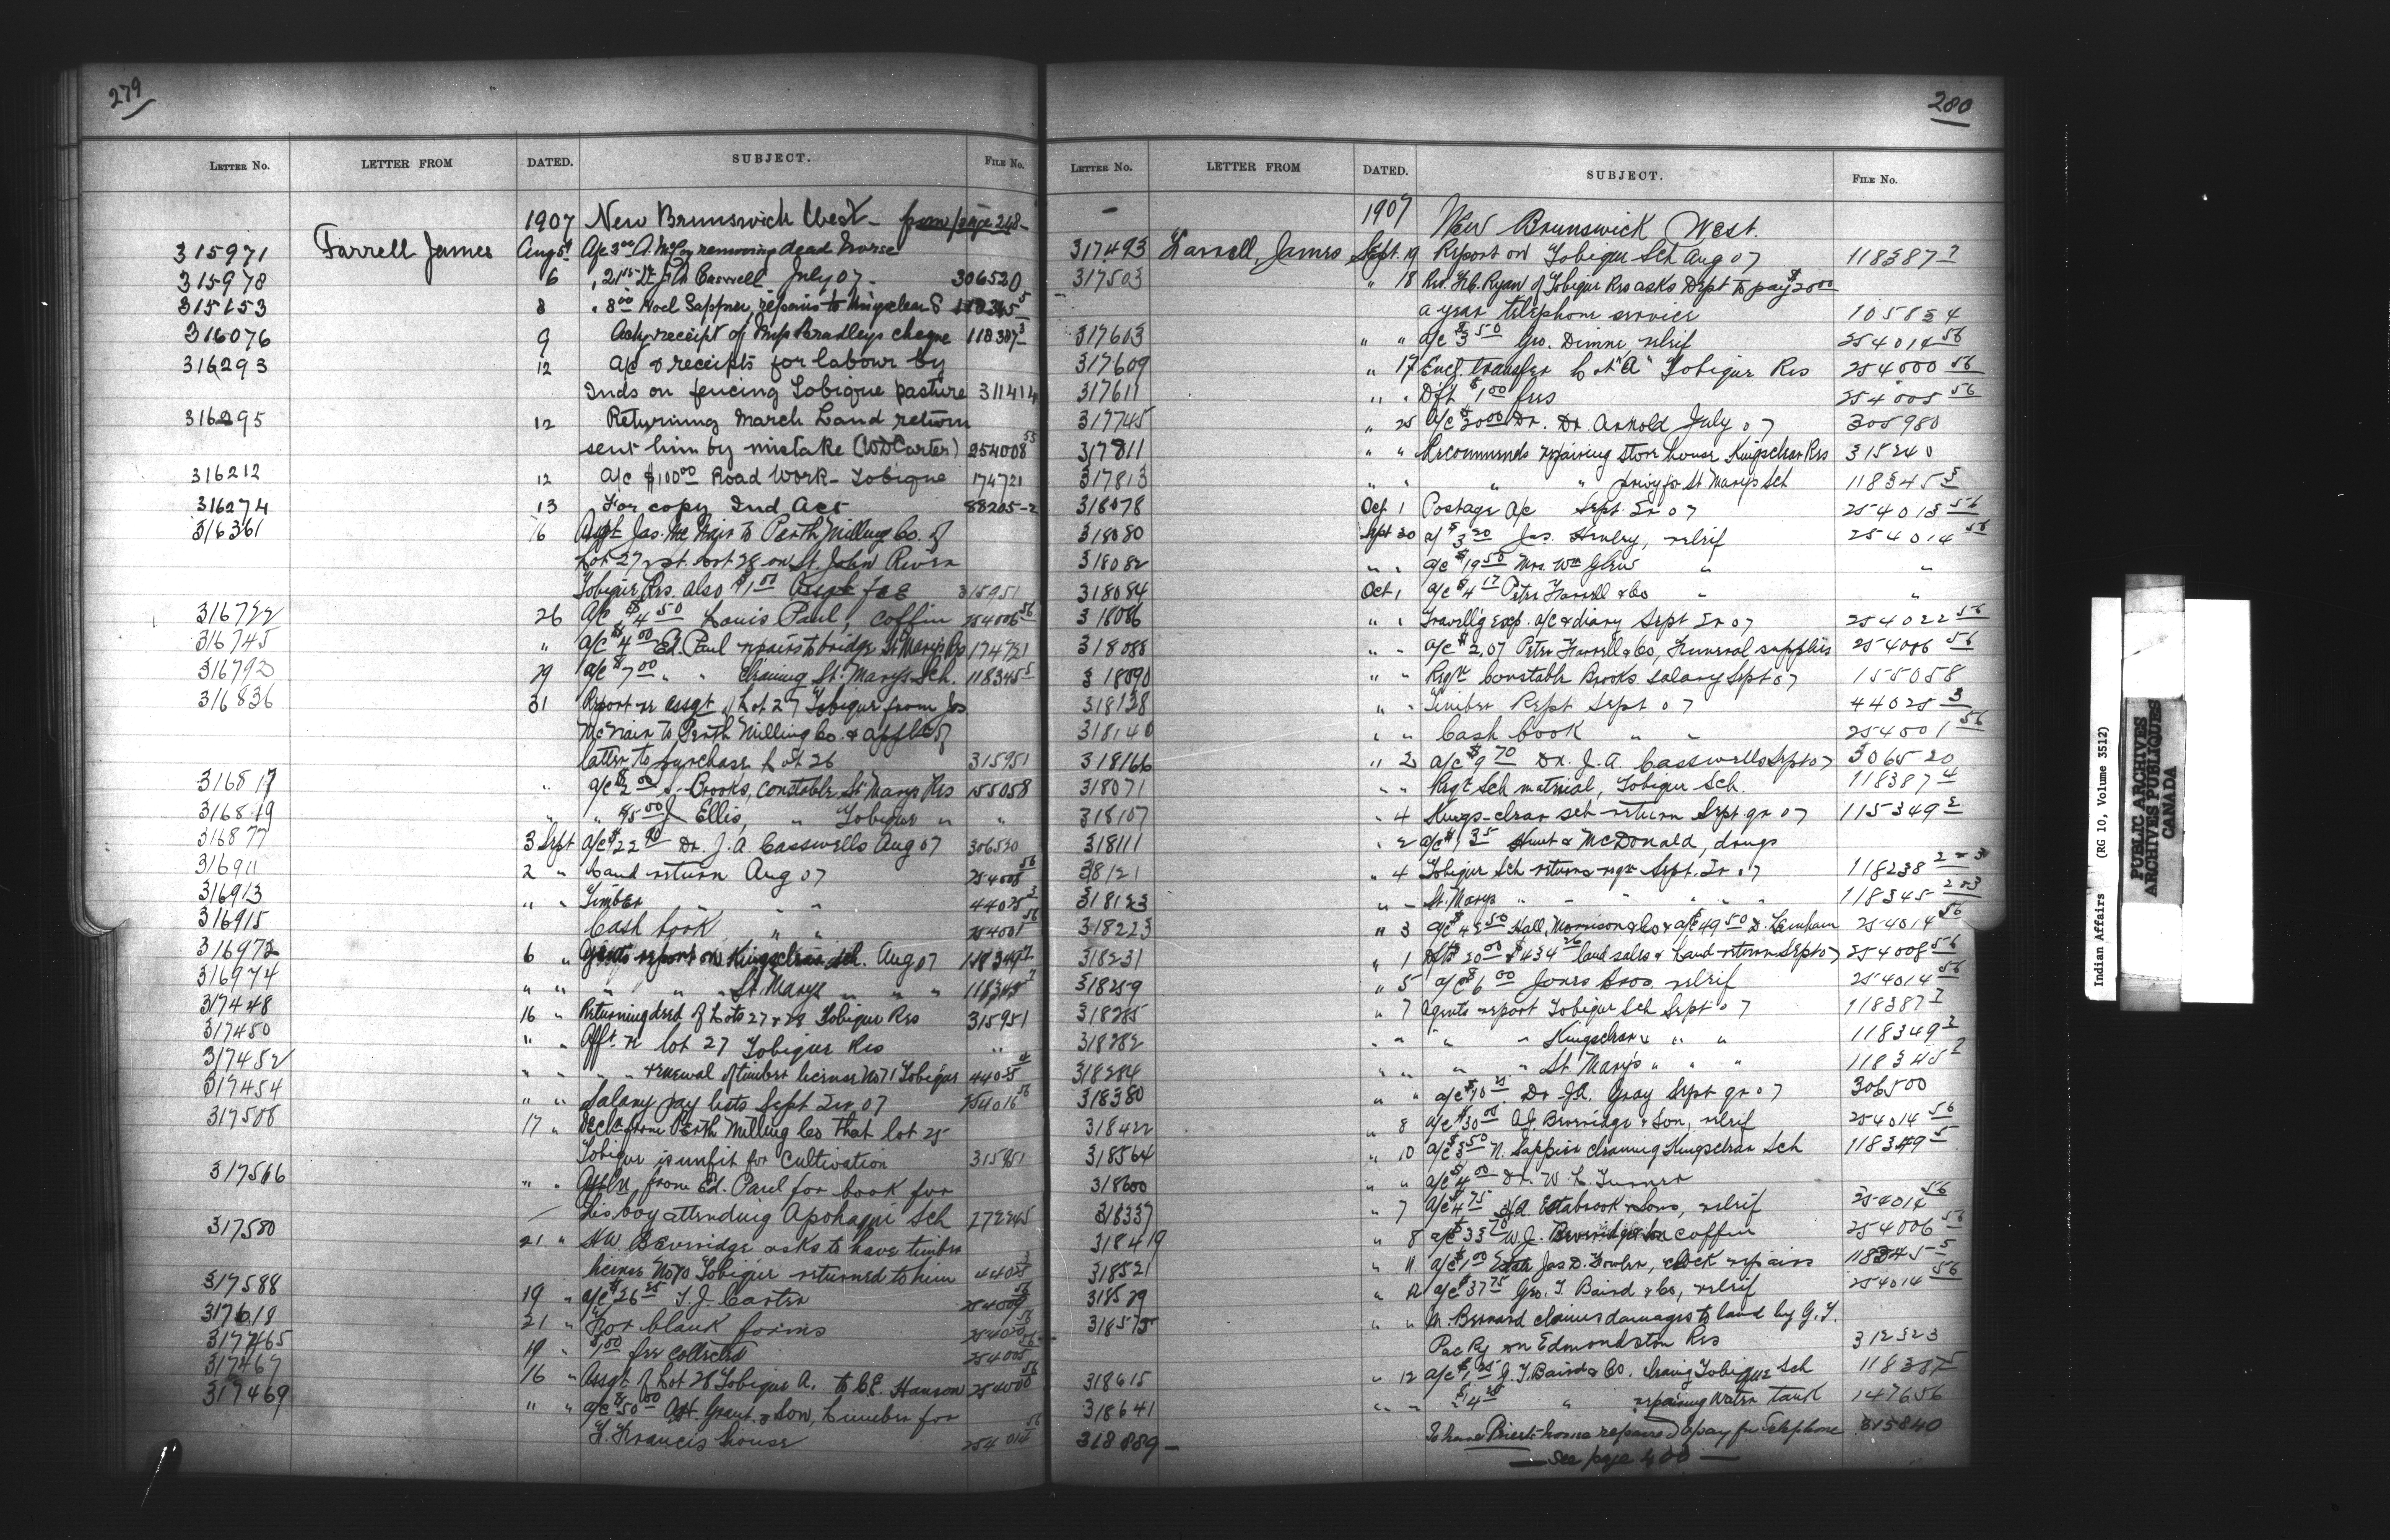 279
LETTER NO. LETTER FROM DATED. SUBJECT. FILE NO.
1907 New Brunswick West - from page 248-
315971 Farrell James Aug 5 A/c 3 00 A. McCoy removing dead horse
315978 6 " 21 15 Dr J A Caswell July 07 - 306520
315153 8 " 8 00 Noel Sappier, repairs to S 5
316076 9 Ackg receipt of Miss Bradleys cheque 118387 3
316293 12 A/c & receipts for labour by
Inds on fencing Tobique pasture 311414
316295 12 Returning March Land return
sent him by mistake (WD Carter) 254008 55
316212 12 A/c $100 00 Road Work - Tobique 174721
316274 13 For copy Ind Act 88205-2
316361 16 Assgt Jas. McNair to Perth Milling Co. of
Lot 27 & pt. Lot 28 on St. John River
Tobique Res. also $1 00 Assgt fee 315951
316722 26 A/c $4 50 Louis Paul, coffin 254006 56
316745 " A/c $4 00 Ed. Paul repairs to bridge St Marys Res 174721
316792 29 a/c $7 00 " " Cleaning St. Marys Sch. 118345 5
316836 31 Report re assgt of Lot 27 Tobique from Jas
McNair to Perth Milling Co. & appln of
latter to purchase Lot 26 315951
316817 " a/c $2 00 S. Brooks, constable St Marys Res 155058
316819 " " $5 00 J Ellis, " Tobique " "
316877 3 Sept A/c $22 90 Dr. J. A. Casswells Aug 07 306520
316911 2 " Land return Aug 07 254008 56
316913 " " Timber " " 44025 3
316915 Cash book " " 254001 56
316972 6 " Agents report on Kingsclear Sch. Aug 07 118349 2
316974 " " " " " St. Marys " " " 118345 2
317448 16 " Returning deed of Lots 27 & 28 Tobique Res 315951
317450 " " Afft. re lot 27 Tobique Res "
317452 " " " " renewal of timber license No 71 Tobique 44025 4
317454 " " Salary pay lists Sept Qr 07 254016 56
317508 17 " Decln from Perth Milling Co that lot 25
Tobique is unfit for cultivation 315951
317566 " " Appln from Ed. Paul for book for
his boy attending Apohaqui Sch 272245
317580 21 " H.W. Beveridge asks to have timber
license No 70 Tobique returned to him 44025 3
317588 19 " a/c $26 25 T. J. Carter 254009 56
317618 21 " For blank forms 254020 56
317465 19 " $1 00 fee collected 254005 56
317467 16 " Assgt of Lot 28 Tobique A. to C.E. Hanson 254000 56
317469 " " a/c $50 00 Grant & Son, Lumber for
F. Francis house 254014 56
280
LETTER NO. LETTER FROM DATED. SUBJECT. FILE NO.
1907 New Brunswick West.
317493 Farrell, James Sept. 19 Report on Tobique Sch Aug 07 118387 2
317503 " 18 Rev. Ryan of Tobique Res asks Dept to pay $20 00
a year telephone service 105834
317603 " " a/c $3 50 Geo. Dimne, relief 254014 56
317609 " 17 Encl. transfer Lot "A" Tobique Res 254000 56
317611 " " Dft $1 00 fees 254005 56
317745 " 25 a/c $20 00 Dr. Arnold July 07 305980
317811 " " Recommends repairing store house Kingsclear Res 315240
317813 " " " " privy for St Marys Sch 118345 5
318078 Oct 1 Postage a/c Sept Qr 07 254013 56
318080 Sept 30 a/c $3 20 Jas. Henley, relief 254014 56
318082 " " a/c $19 50 Mrs. Wm " "
318084 Oct 1 a/c $4 17 Peter Farrell & Co " "
318086 " " Travellg Exp. a/c & diary Sept Qr 07 254022 56
318088 " " a/c $2.07 Peter Farrell & Co, Funeral supplies 254006 56
318090 " " Reqn Constable Brooks salary Sept 07 155058
318138 " " Timber Rept Sept 07 44025 3
318140 " " Cash book " " 254001 56
318166 " 2 a/c $9 70 Dr. J. A. Casswells Sept 07 306520
318071 " " Reqn Sch material, Tobique Sch. 118387 4
318107 " 4 Kings-clear sch return Sept qr 07 115349 2
318111 " 2 a/c $1 35 Hunt & McDonald, drugs
318121 " 4 Tobique Sch returns reqn Sept. Qr 07 118238 2 & 3
318123 " " St. Marys " " " " " 118345 2 & 3
318223 " 3 a/c $4 50 Hall, Morrison & Co & a/c $49 50 D. Lenihan 254014 56
318231 " 1 Dfts 20 00 & $434 26 land sales & Land return Sept 07 254008 56
318259 " 5 a/c $6 00 Jones Bros. relief 254014 56
318285 " 7 Agents report Tobique Sch Sept 07 118387 2
318282 " " " " Kingsclear " " " 118349 2
318284 " " " " St Mary's " " " 118345 2
318380 " " a/c $10 25 Dr. J.A. Gray Sept qr 07 306500
318422 " 8 a/c $30 00 A.J. Beveridge & Son, relief 254014 56
318564 " 10 a/c $3 50 N. Sappier cleaning Kingsclear Sch 118349 5
318600 " " a/c $4 00 Dr. W. L. Turner
318337 " 7 a/c $4 75 A. Estabrook & Sons, relief 254014 56
318419 " 8 a/c $33 70 W.J. Beveridge & Son coffin 254006 56
318521 " 11 a/c $1 00 Estate Jas D. Fowler, clock repairs 118345 5
318529 " 12 a/c $37 75 Geo. T. Baird & Co, relief 254014 56
318575 " " M. Bernard claims damages to land by G.T.
Pac Ry on Edmondston Res 312323
318615 " 12 a/c $1 25 G. T. Baird & Co. Tobique Sch 118387 5
318641 " " $14 25 " repairing Water tank 147656
318889 - To have Priest's house repaired & pay for Telephone 315840
— See page 400 —
Indian Affairs (RG 10, Volume 3512)
PUBLIC ARCHIVES
ARCHIVES PUBLIQUES
CANADA